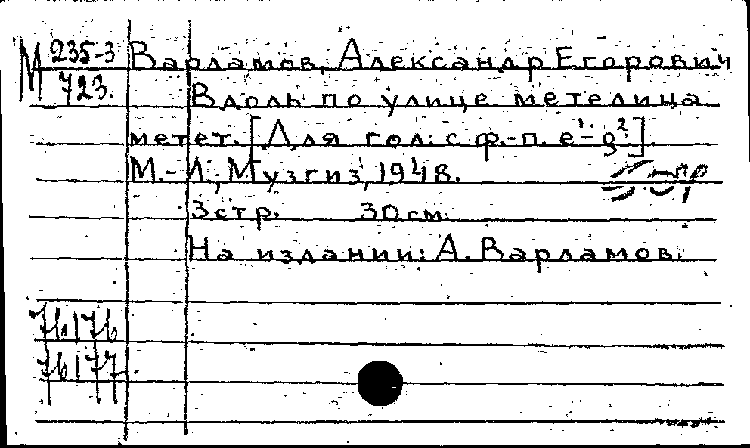 М 235-3
723.
Варламов, Александр Егорович
Вдоль по улице метелица
метет. [Для гол. с ф.-п. e¹-g²]
М.-Л., Музгиз, 1948.
3 стр. 30 см.
На издании: А. Варламов.
76176
76177